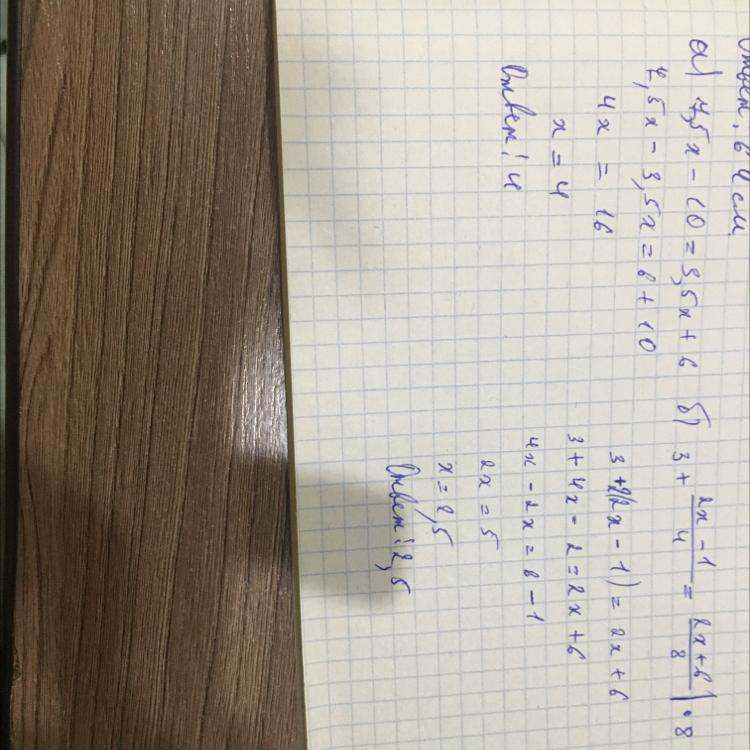 Ответ: 64 см
а) 7,5x - 10 = 3,5x + 6
7,5x - 3,5x = 6 + 10
4x = 16
x = 4
Ответ: 4
б) 3 + 2x - 1 / 4 = 2x + 6 / 8 | · 8
3 + 2(2x - 1) = 2x + 6
3 + 4x - 2 = 2x + 6
4x - 2x = 6 - 1
2x = 5
x = 2,5
Ответ: 2,5